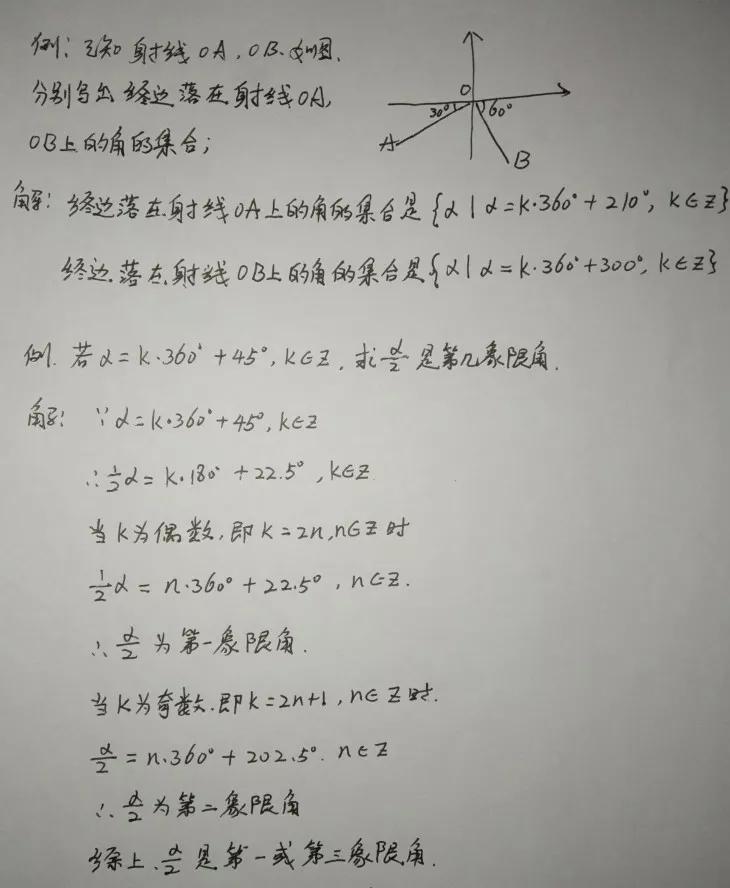 例:已知射线OA,OB.如图,
分别写出终边落在射线OA,
OB上的角的集合;
O
30° 60°
A
B
解: 终边落在射线OA上的角的集合是{α|α=k·360°+210°, k∈Z}
终边落在射线OB上的角的集合是{α|α=k·360°+300°, k∈Z}
例. 若α=k·360°+45°,k∈Z,求α/2是第几象限角.
解: ∵α=k·360°+45°,k∈Z
∴1/2α=k·180°+22.5°,k∈Z
当k为偶数,即k=2n,n∈Z时
1/2α=n·360°+22.5°,n∈Z.
∴α/2为第一象限角.
当k为奇数.即k=2n+1,n∈Z时.
α/2=n·360°+202.5°. n∈Z
∴α/2为第二象限角
综上、α/2是第一或第三象限角.